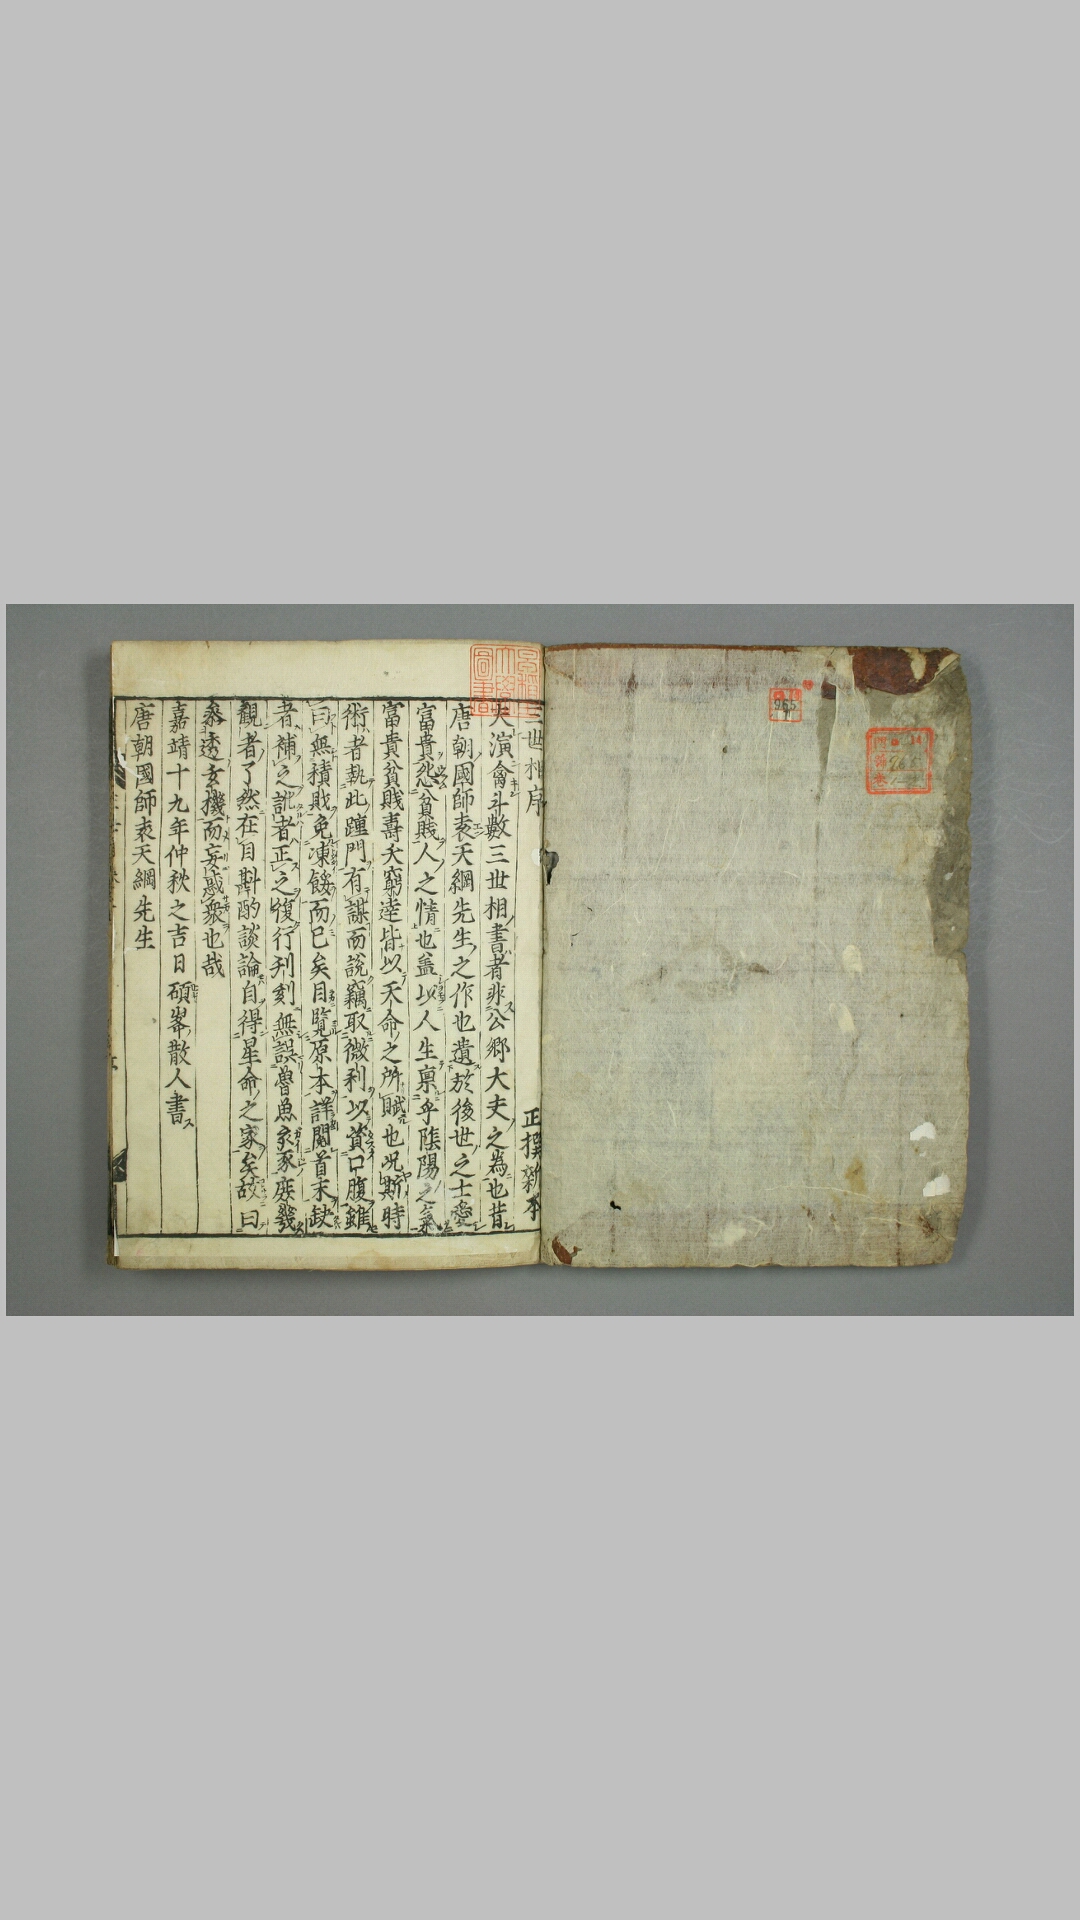 三世相序
正撰新本
大演禽斗數三世相書者非公卿大夫之為也昔
唐朝國師袁天綱先生之作也遺於後世之士愛
富貴怨貧賎人之情也盖以人生禀乎隂陽之氣
富貴貧賎壽夭窮達皆以天命之所賦也况斯時
術者執此踵門有謀而説竊取微利以資口腹雖
曰無積賍免凍餒而已矣目覽原本詳閲首末缺
者補之訛者正之復行刋刻無誤魯魚亥豕庶幾
觀者了然在目斟酌談論自得星命之家矣故曰
叅透玄機而妄惑衆也哉
嘉靖十九年仲秋之吉日碩峯散人書
唐朝國師袁天綱先生
965